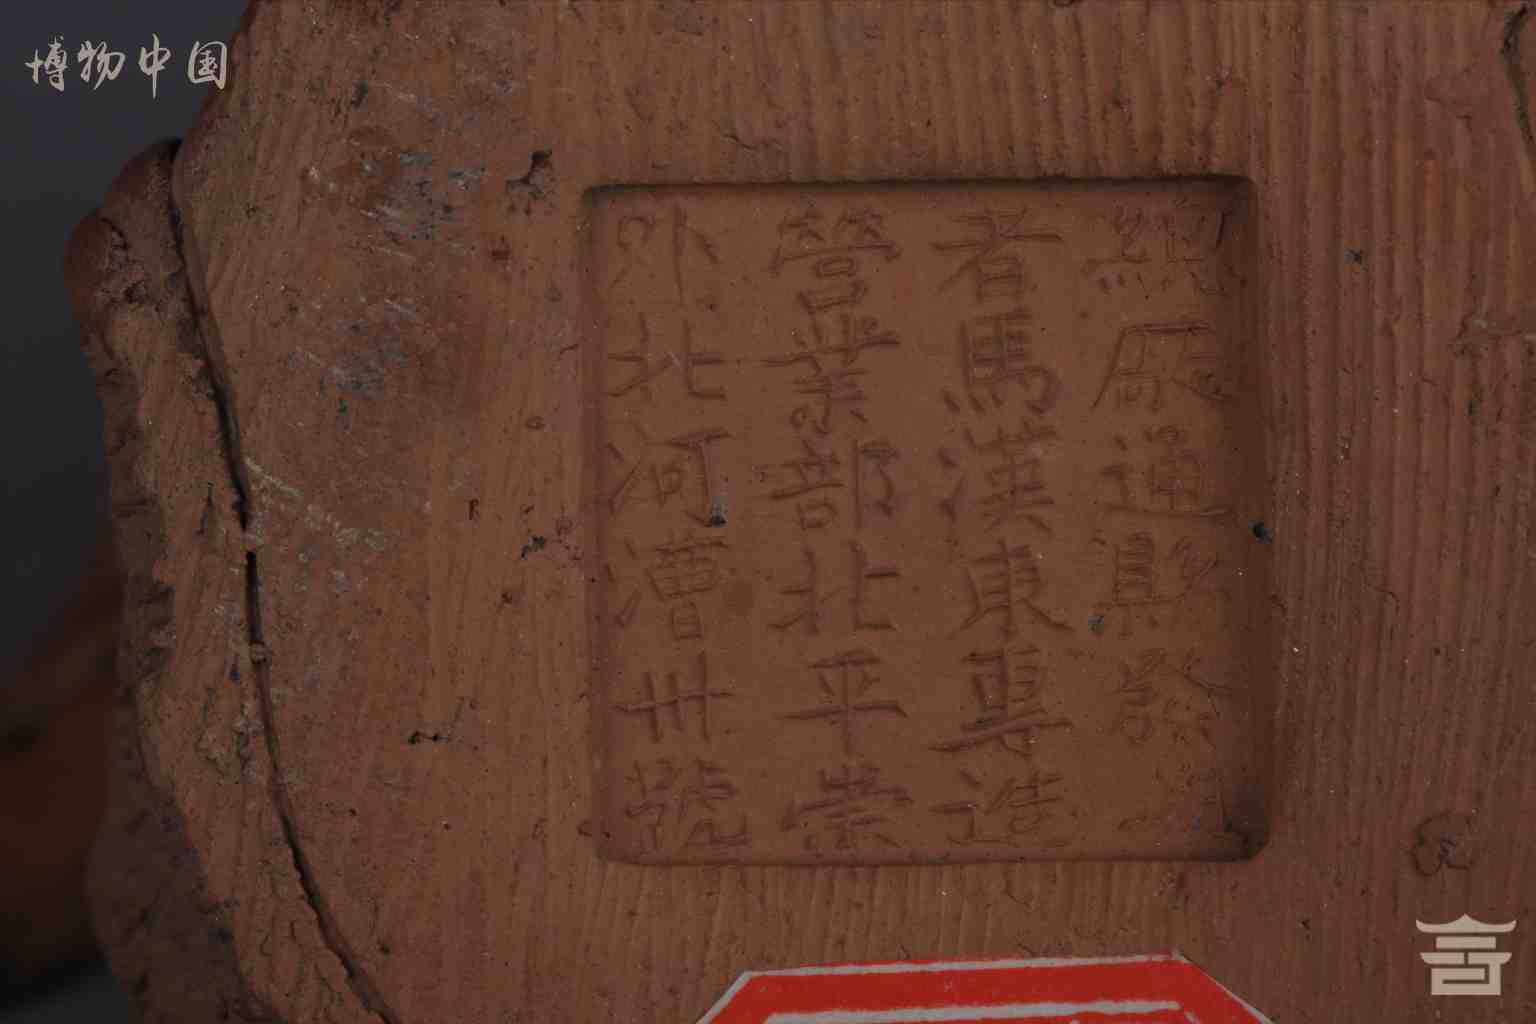 博物中国
總厰通縣發
者馬漢東專造
營業部北平崇
外北河漕卅號